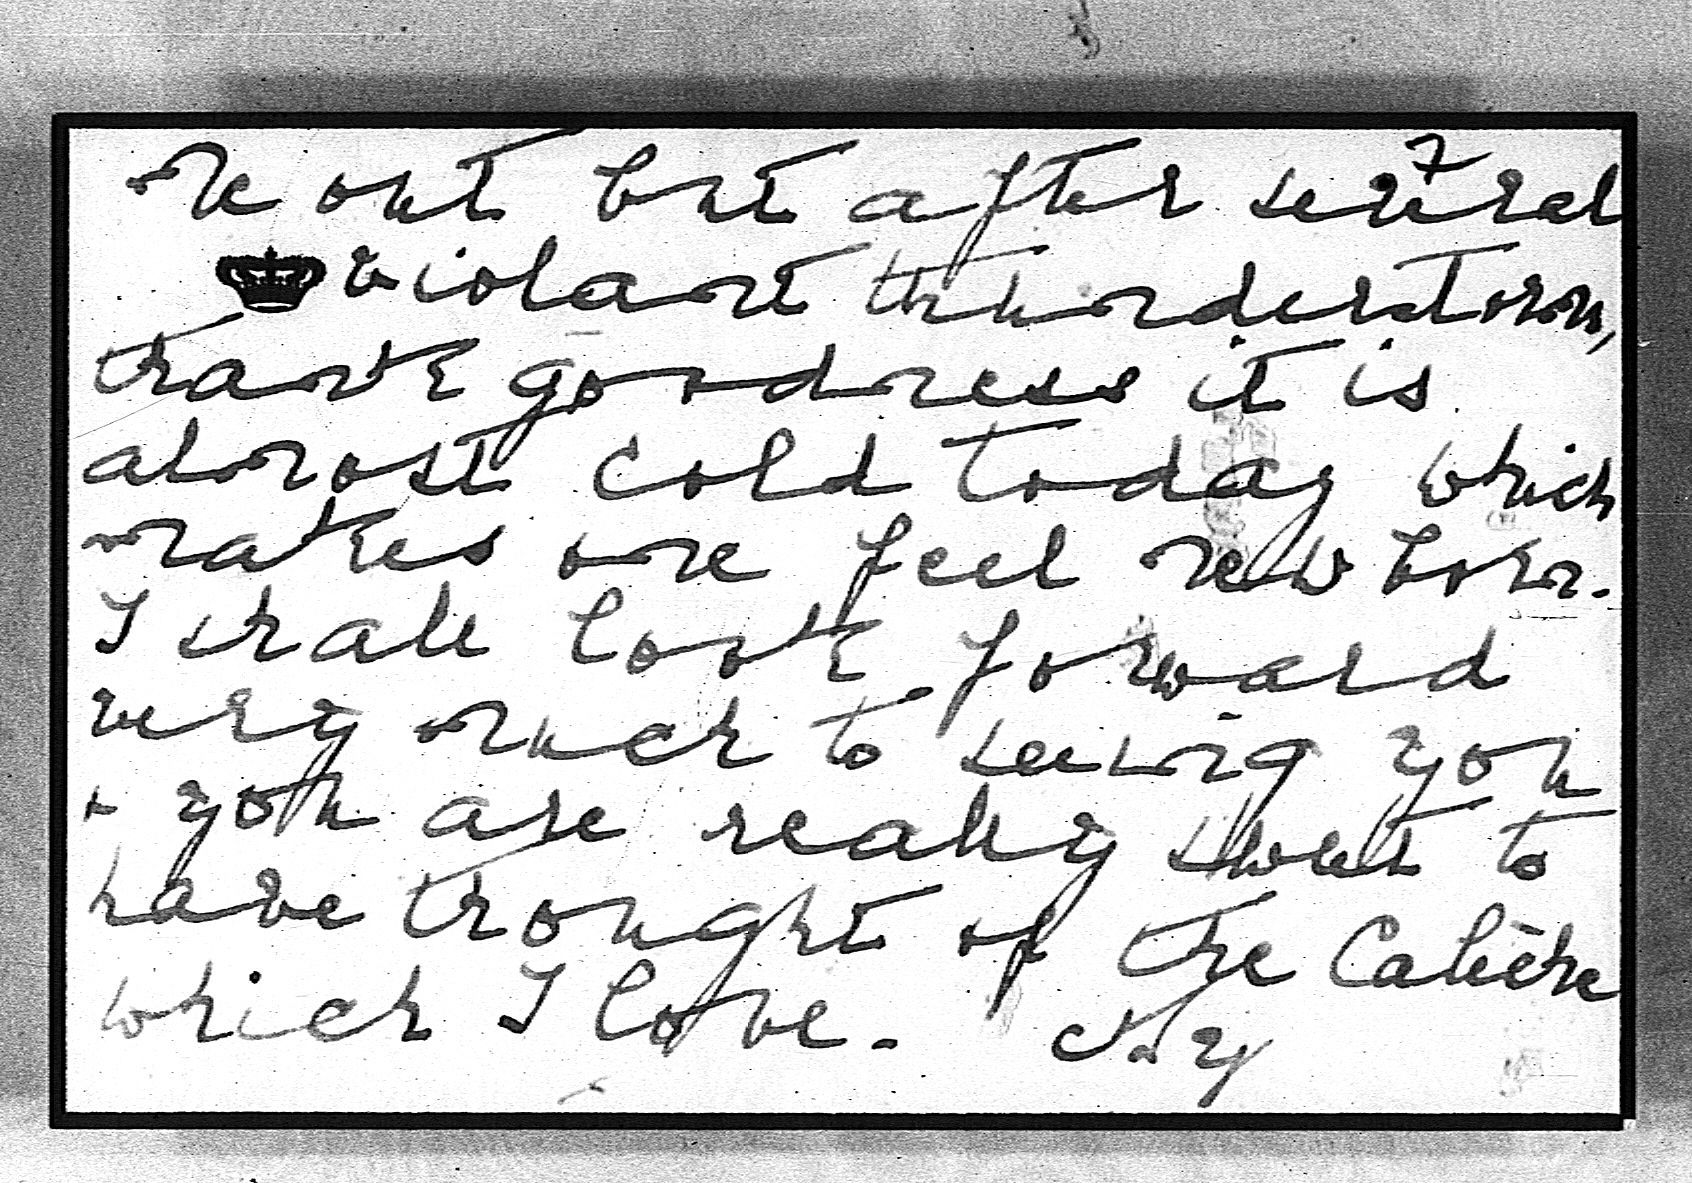 me out but after several 7
violant thunderstorm,
thank goodness it is
almost cold today which
makes one feel new born.
I shall look forward
very much to seeing you
+ you are really sweet to
have thought of the Calèche
which I love. My